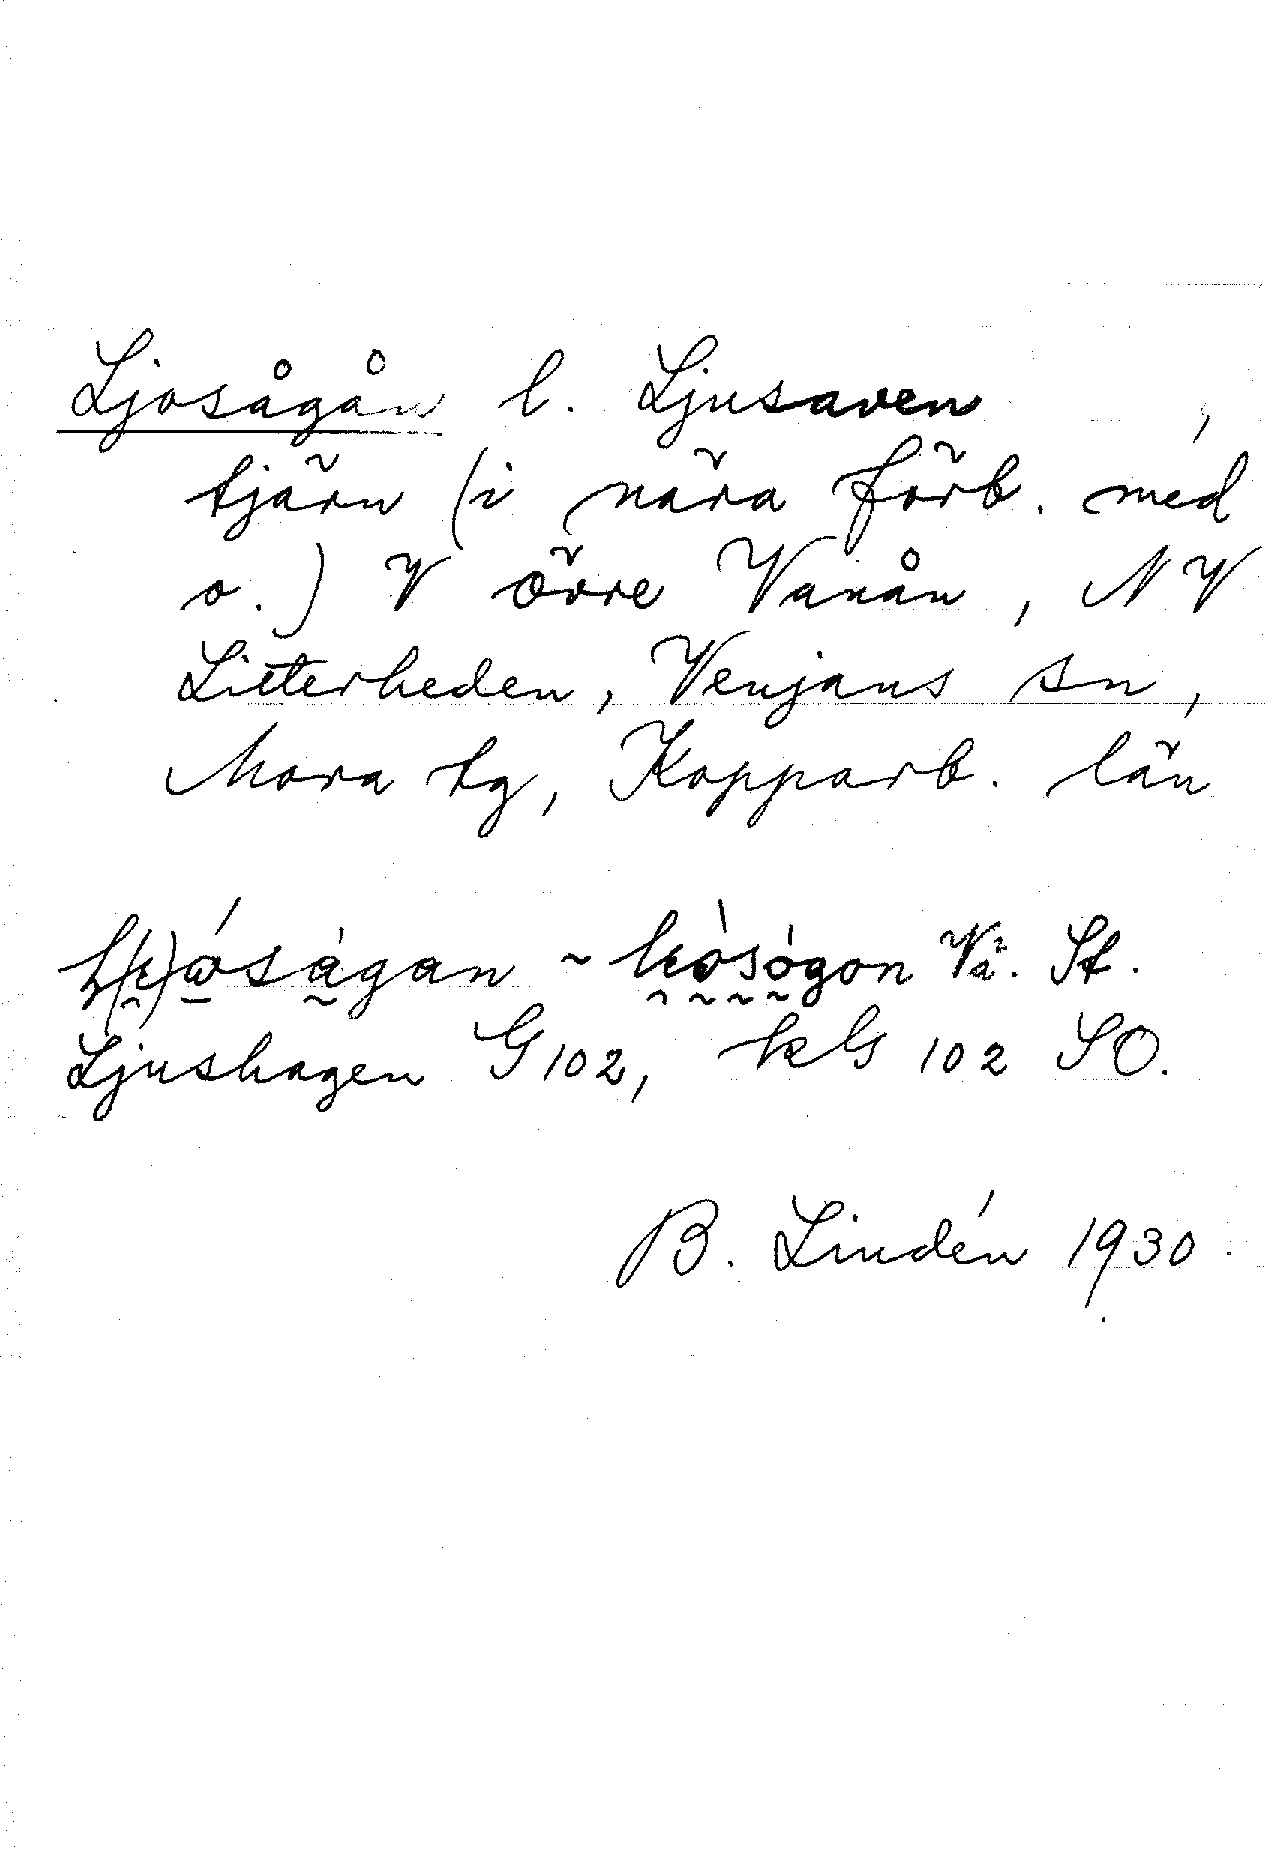 Ljosågån l. Ljusaven,
tjärn (i nära förb. med
o.) V Övre Vanån, NV
Litterheden, Venjans sn,
Mora tg, Kopparb. län
~ Vå. St.
Ljushagen G 102, kG 102 SO.
B. Lindén 1930